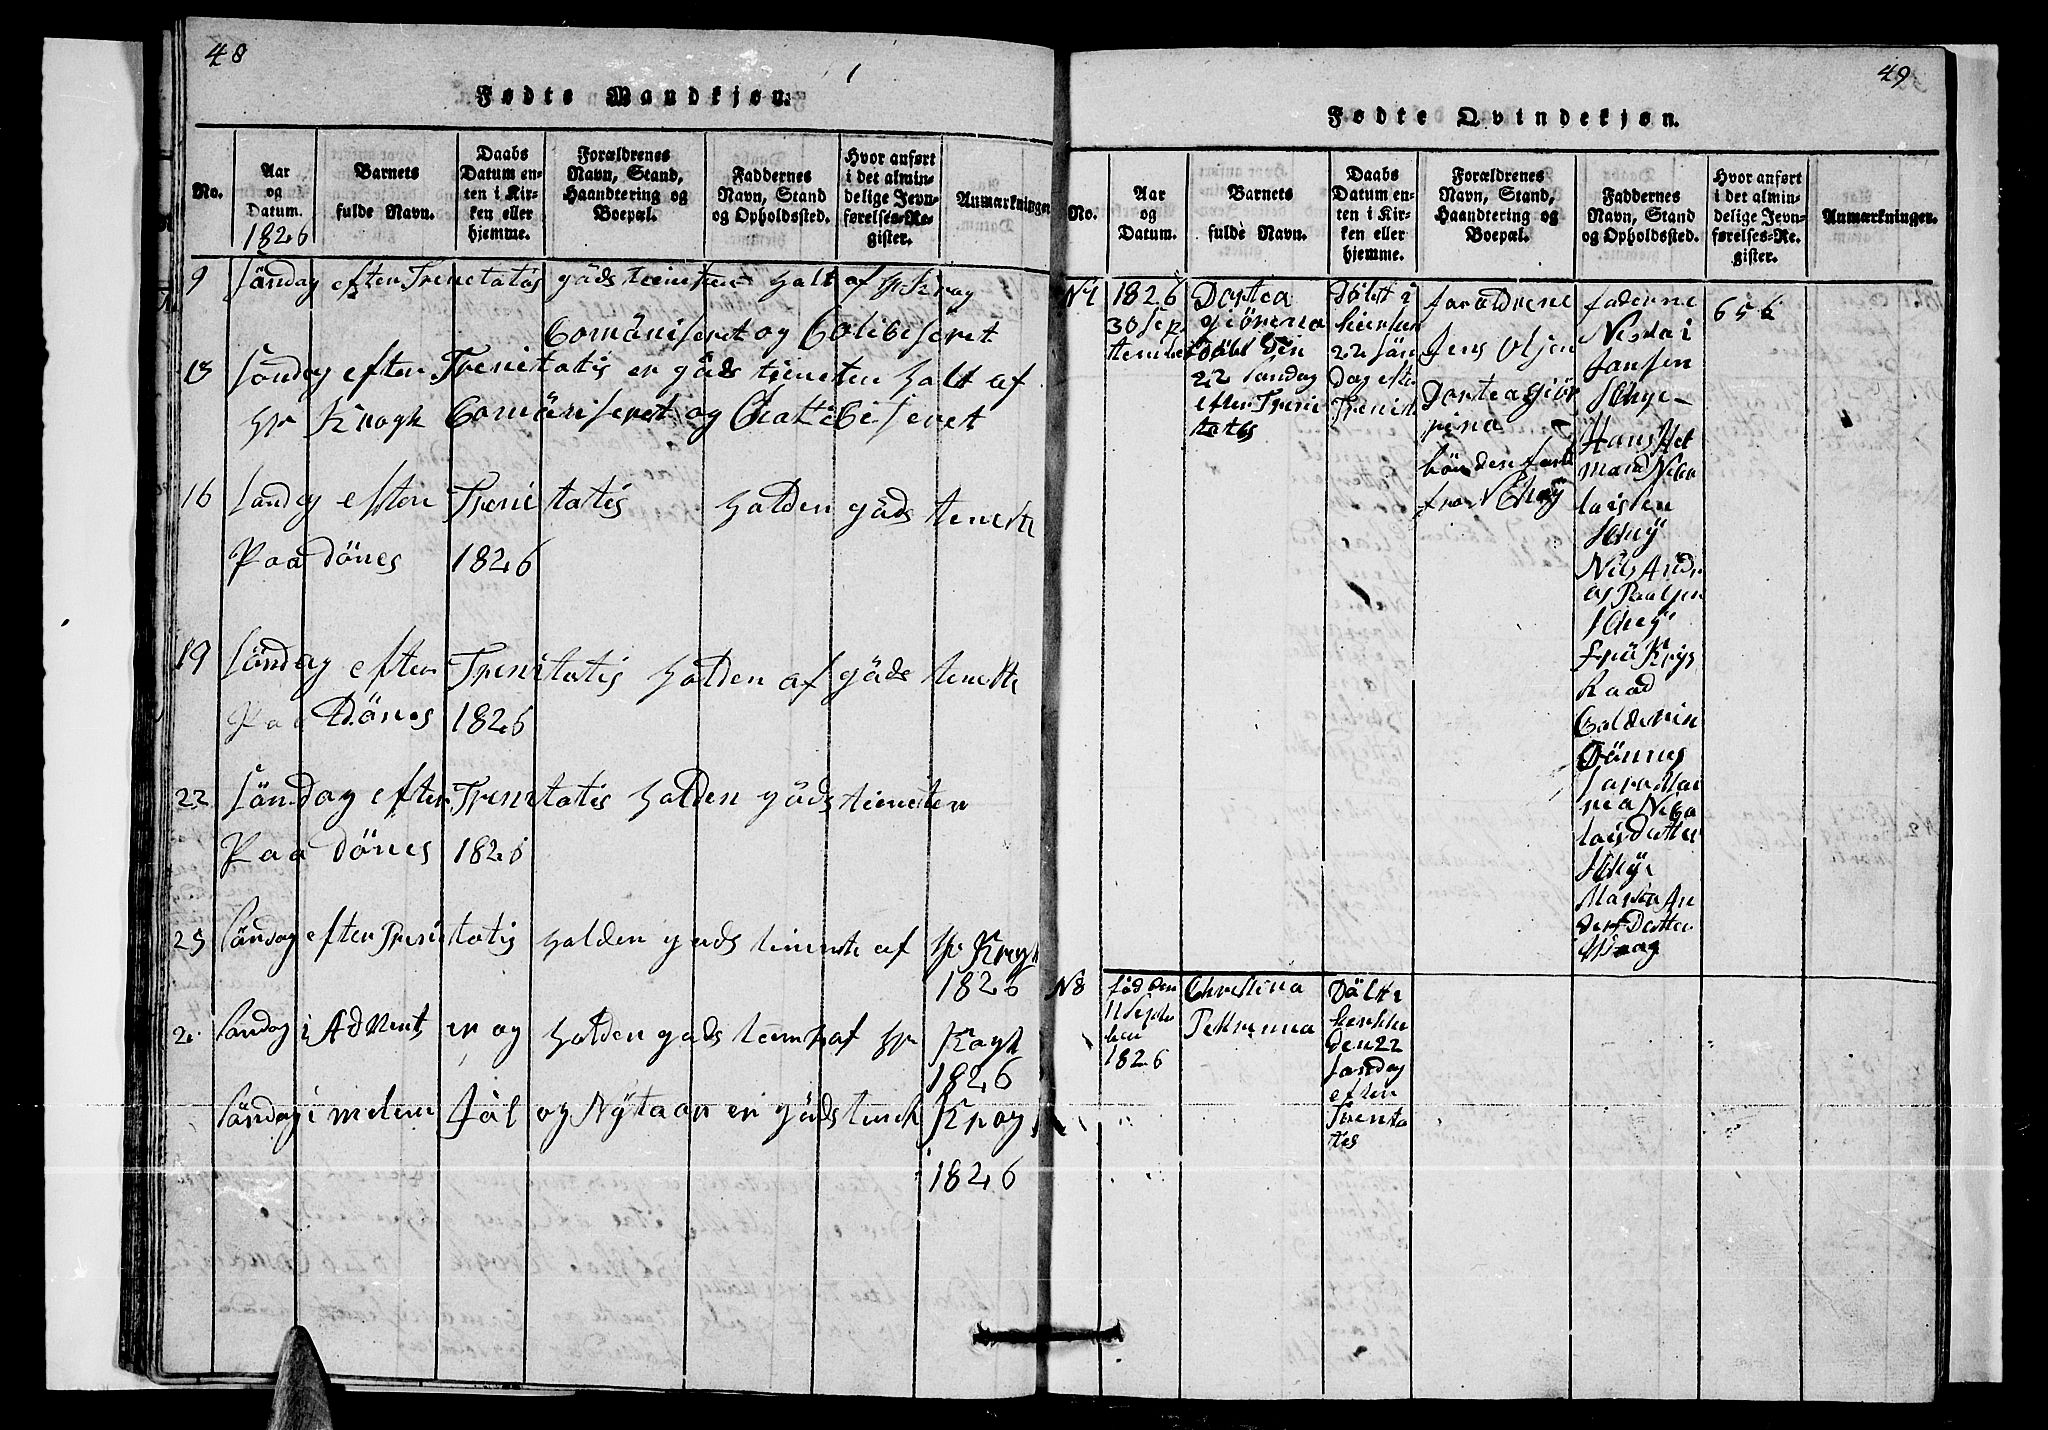 48
Fødte Mandkjøn.
No.
Aar
og
Datum.
1826
Barnets
fulde Navn.
Daabs
Datum en-
ten i Kir-
ken eller
hjemme.
Forældrenes
Navn, Stand,
Haandtering og
Boepæl.
Faddernes
Navn, Stand
og Opholdssted.
Hvor anført
i det almin-
delige Jevn-
førelses-Re-
gister.
Anmærkninger
9 søndag efter Trenetatis guds tienesten halt af hr Krog
Comüniseret og Colibiseret
13 søndag efter Trenitatis er güds tieneten halt af
hr Krogh Comüniseret og Chatibiseret
16 søndag efter Trenitatis holden güds teneste
Paa dönes 1826
19 söndag efter Trenitatis holden af güds teneste
Paa Dönes 1826
22 söndag efter Trenitatis holden güds tienesten
Paa dönes 1826
25 söndag efter Trenitatis holden guds tieneste af hr Krogh
1826
2. söndag i AdVent er og holden guds af hr Krogh
1826
Söndag i melem Jül og Nÿtaar er güds Krog
1826
49
Fødte Qvindekjøn.
No.
Aar
og
Datum.
Barnets
fulde Navn.
Daabs
Datum en-
ten i Kir-
ken eller
hjemme.
Forældrenes
Navn, Stand,
Haandtering og
Boepæl.
Faddernes
Navn, Stand
og Opholdssted.
Hvor anført
i det almin-
delige Jevn-
førelses-Re-
gister.
Anmærkninger.
1826
30 sep
tember
Dortea
giörena
Döbt Den
22 sandag
efter Treni
tatis
Döbt i
kierken
22 sön
Dag efter
Trenit
foraldrene
Jens Olsen
Dortea giör
rina
fra
faderne
Nicolai
Jansen
Hans Het
mand Nico
laisen
Nils Andre
as Paulsen
frü Krÿs
Raad
Coldevin
Dönnes
Sara Mar
rea Nico
lais Datter
Maria An
ders Datter
656
N8
föd den
11 Septem
ber
1826
Christina
Petrenna
Döbt i
kerkke
den 22
sondag
efter
Trenita
tes